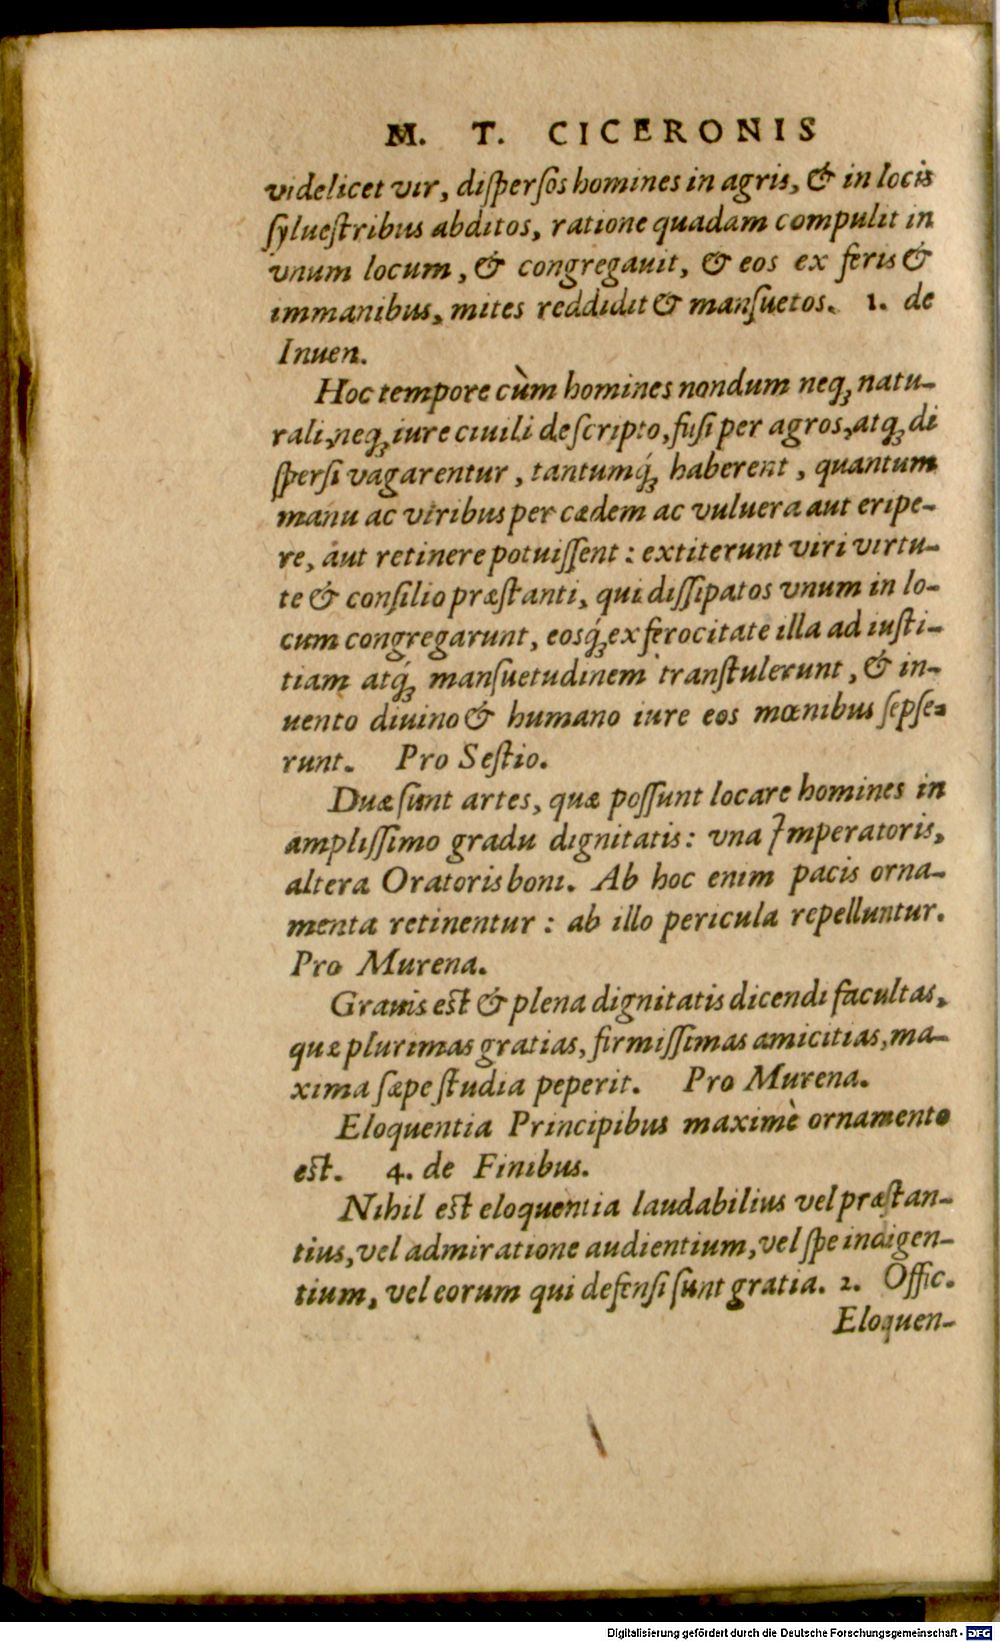 M. T. CICERONIS
videlicet vir, diſperſos homines in agris, & in locis
ſylueſtribus abditos, ratione quadam compulit in
vnum locum, & congregauit, & eos ex feris &
immanibus, mites reddidit & manſuetos. 1. de
Inuen.
Hoc tempore cùm homines nondum neqꝫ natu-
rali, neqꝫ iure ciuili deſcripto, fuſi per agros, atqꝫ di
ſperſi vagarentur, tantumq́ꝫ haberent, quantum
manu ac viribus per cædem ac vuluera aut eripe-
re, aut retinere potuiſſent: extiterunt viri virtu-
te & conſilio præſtanti, qui diſſipatos vnum in lo-
cum congregarunt, eosq́ꝫ ex ferocitate illa ad iuſti-
tiam atq́ꝫ manſuetudinem tranſtulerunt, & in-
uento diuino & humano iure eos mœnibus ſepſe-
runt. Pro Seſtio.
Duæ ſunt artes, quæ poſſunt locare homines in
ampliſſimo gradu dignitatis: vna Imperatoris,
altera Oratoris boni. Ab hoc enim pacis orna-
menta retinentur: ab illo pericula repelluntur.
Pro Murena.
Grauis eſt & plena dignitatis dicendi facultas,
quæ plurimas gratias, firmiſſimas amicitias, ma-
xima ſæpe ſtudia peperit. Pro Murena.
Eloquentia Principibus maximè ornamento
eſt. 4. de Finibus.
Nihil eſt eloquentia laudabilius vel præſtan-
tius, vel admiratione audientium, vel ſpe indigen-
tium, vel eorum qui defenſi ſunt gratia. 2. Offic.
Eloquen-
Digitalisierung gefördert durch die Deutsche Forschungsgemeinschaft - DFG